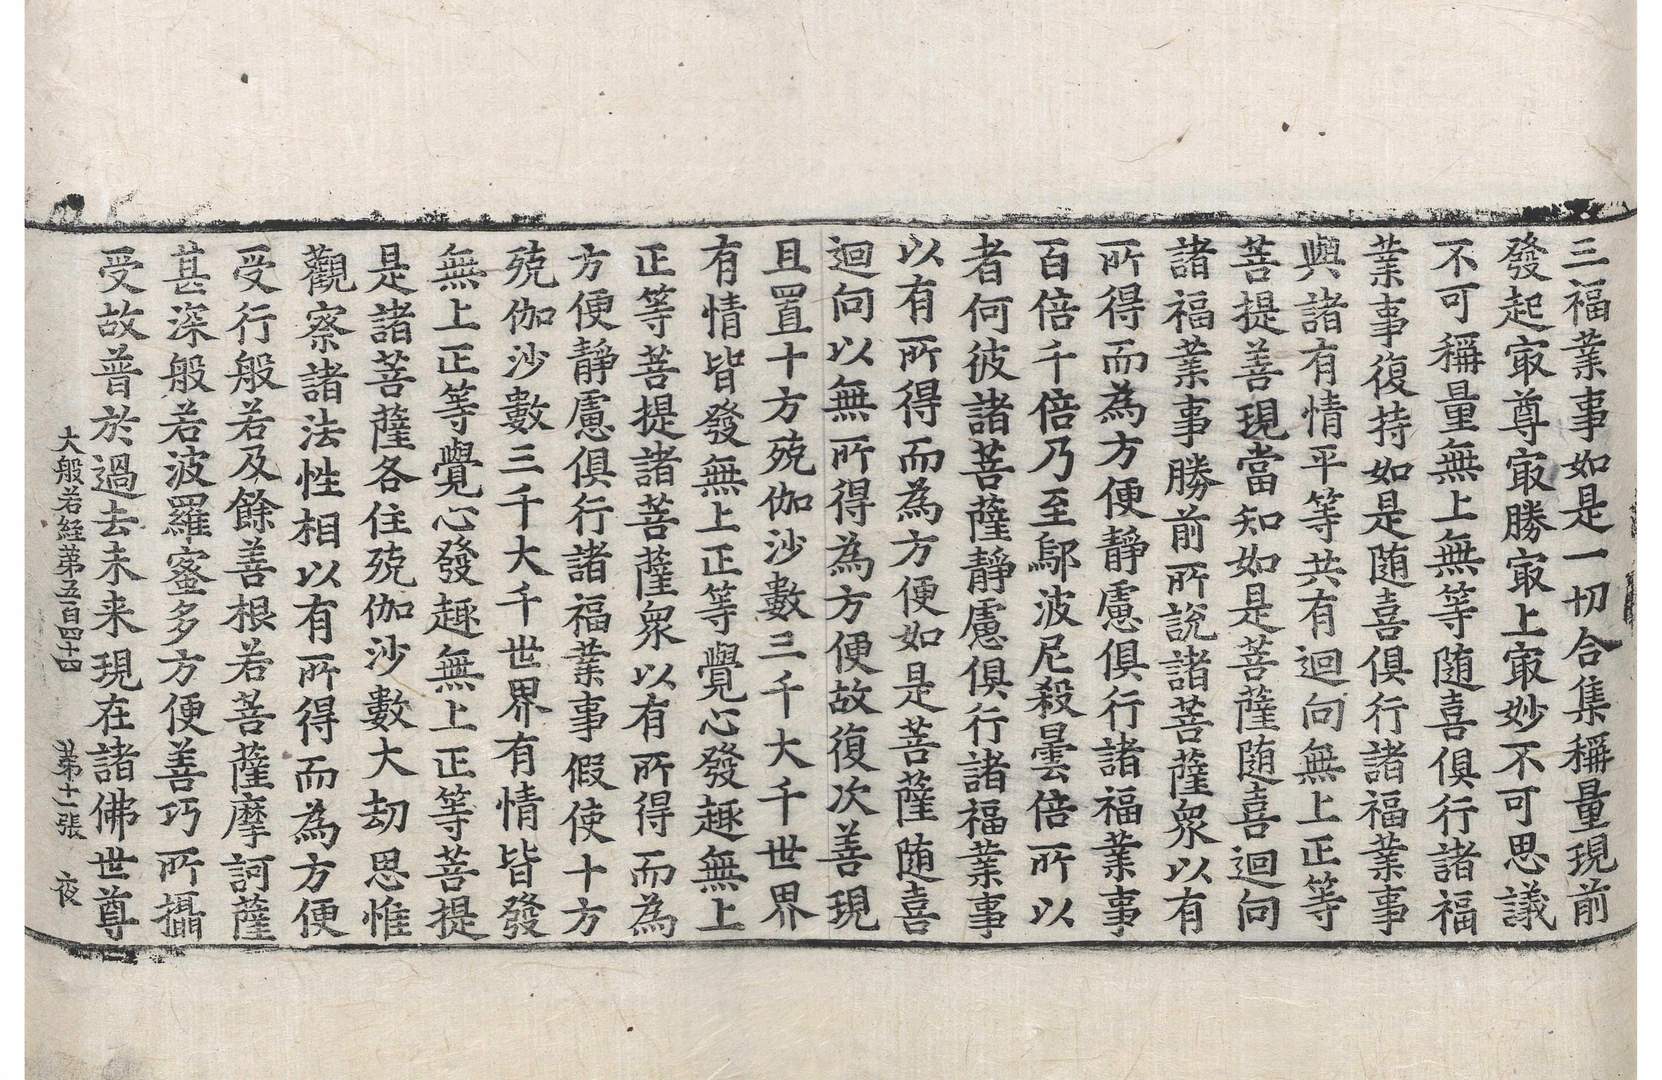 三福業事如是一切合集稱量現前
發起㝡尊㝡勝㝡上㝡妙不可思議
不可稱量無上無等随喜俱行諸福
業事復持如是随喜俱行諸福業事
與諸有情平等共有迴向無上正等
菩提善現當知如是菩薩随喜迴向
諸福業事勝前所說諸菩薩衆以有
所得而為方便靜慮俱行諸福業事
百倍千倍乃至鄔波尼殺曇倍所以
者何彼諸菩薩靜慮俱行諸福業事
以有所得而為方便如是菩薩随喜
迴向以無所得為方便故復次善現
且置十方殑伽沙數三千大千世界
有情皆發無上正等覺心發趣無上
正等菩提諸菩薩衆以有所得而為
方便靜慮俱行諸福業事假使十方
殑伽沙數三千大千世界有情皆發
無上正等覺心發趣無上正等菩提
是諸菩薩各住殑伽沙數大劫思惟
觀察諸法性相以有所得而為方便
受行般若及餘善根若菩薩摩訶薩
甚深般若波羅蜜多方便善巧所攝
受故普於過去未来現在諸佛世尊
大般若経苐五百四十四 苐十二張 夜